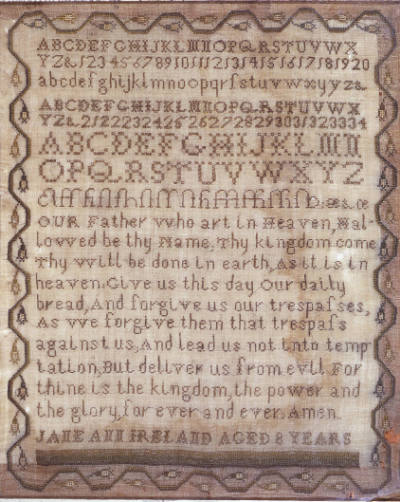 ABCDEFGHIJKLMNOPQRSTUVWX
YZ&1234567891011121314151617181920
abcdefghijklmnoopqrſstuvwxyyz&
ABCDEFGHIJKLMNOPQRSTUVWX
YZ&2122232425262728293031323334
ABCDEFGHIJKLMN
OPQRSTUVWXYZ
OUR Father Who art in Heaven, Hal-
lowed be thy Name. Thy kingdom come
Thy Will be done in earth, As it is in
heaven. Give us this day Our daily
bread, And forgive us our trespaſses,
As We forgive them that trespaſs
against us, And lead us not into temp
tation, But deliver us from evil For
thine is the kingdom, the power and
the glory, for ever and ever. Amen.
JANE ANN IRELAND AGED 8 YEARS